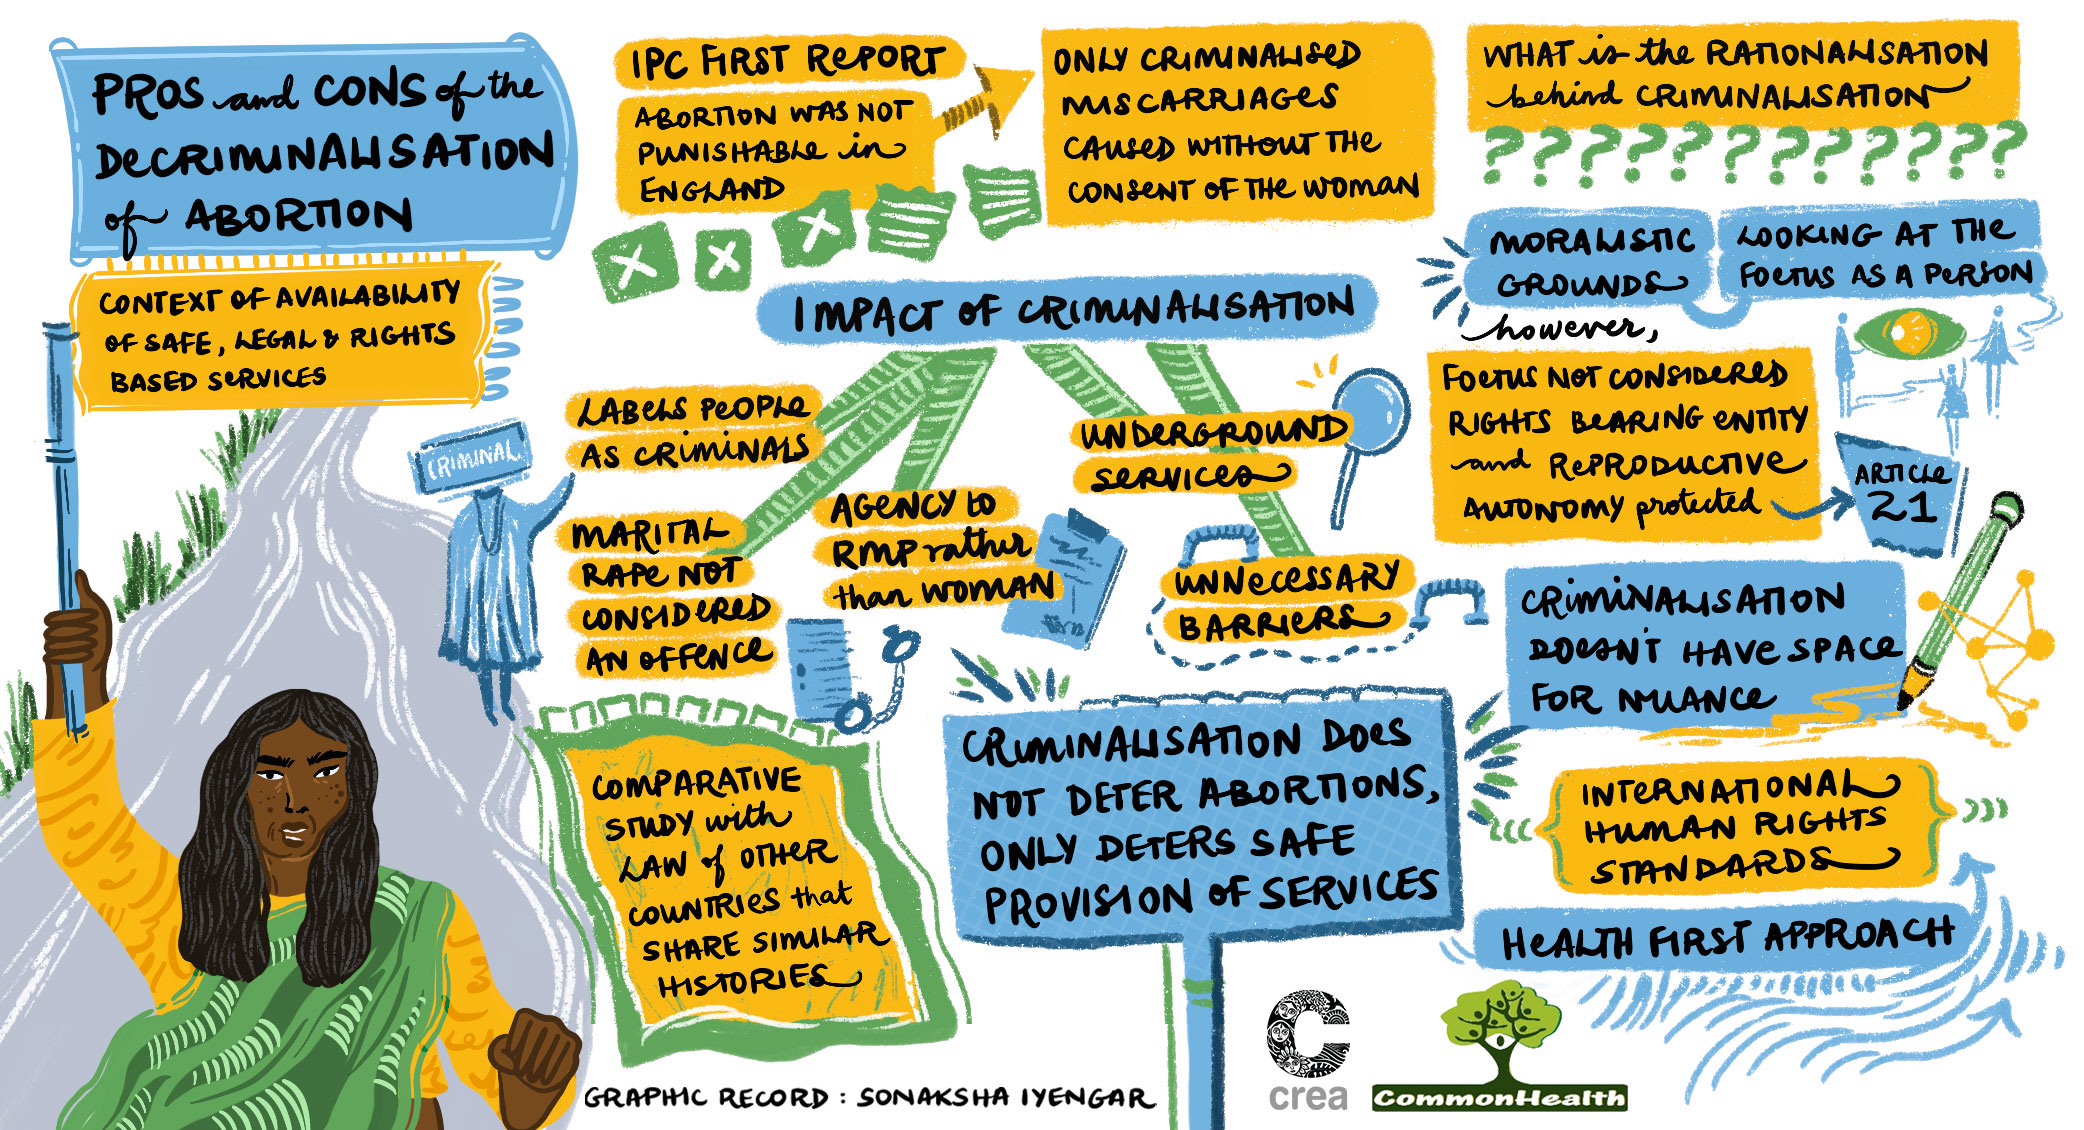 PROS and CONS of the
DECRIMINALISATION
of ABORTION
CONTEXT OF AVAILABILITY
OF SAFE, LEGAL & RIGHTS
BASED SERVICES
IPC FIRST REPORT
ABORTION WAS NOT
PUNISHABLE in
ENGLAND
ONLY CRIMINALISED
MISCARRIAGES
CAUSED WITHOUT THE
CONSENT OF THE WOMAN
WHAT is the RATIONALISATION
behind CRIMINALISATION
? ? ? ? ? ? ? ? ? ? ? ?
MORALISTIC
GROUNDS
LOOKING AT THE
FOETUS AS A PERSON
however,
FOETUS NOT CONSIDERED
RIGHTS BEARING ENTITY
and REPRODUCTIVE
AUTONOMY protected
ARTICLE
21
IMPACT OF CRIMINALISATION
LABELS PEOPLE
AS CRIMINALS
CRIMINAL
MARITAL
RAPE NOT
CONSIDERED
AN OFFENCE
AGENCY to
RMP rather
than WOMAN
UNDERGROUND
SERVICES
UNNECESSARY
BARRIERS
CRIMINALISATION
DOESN'T HAVE SPACE
FOR NUANCE
COMPARATIVE
STUDY with
LAW of OTHER
COUNTRIES that
SHARE SIMILAR
HISTORIES
CRIMINALISATION DOES
NOT DETER ABORTIONS,
ONLY DETERS SAFE
PROVISION OF SERVICES
INTERNATIONAL
HUMAN RIGHTS
STANDARDS
HEALTH FIRST APPROACH
GRAPHIC RECORD : SONAKSHA IYENGAR
crea
CommonHealth